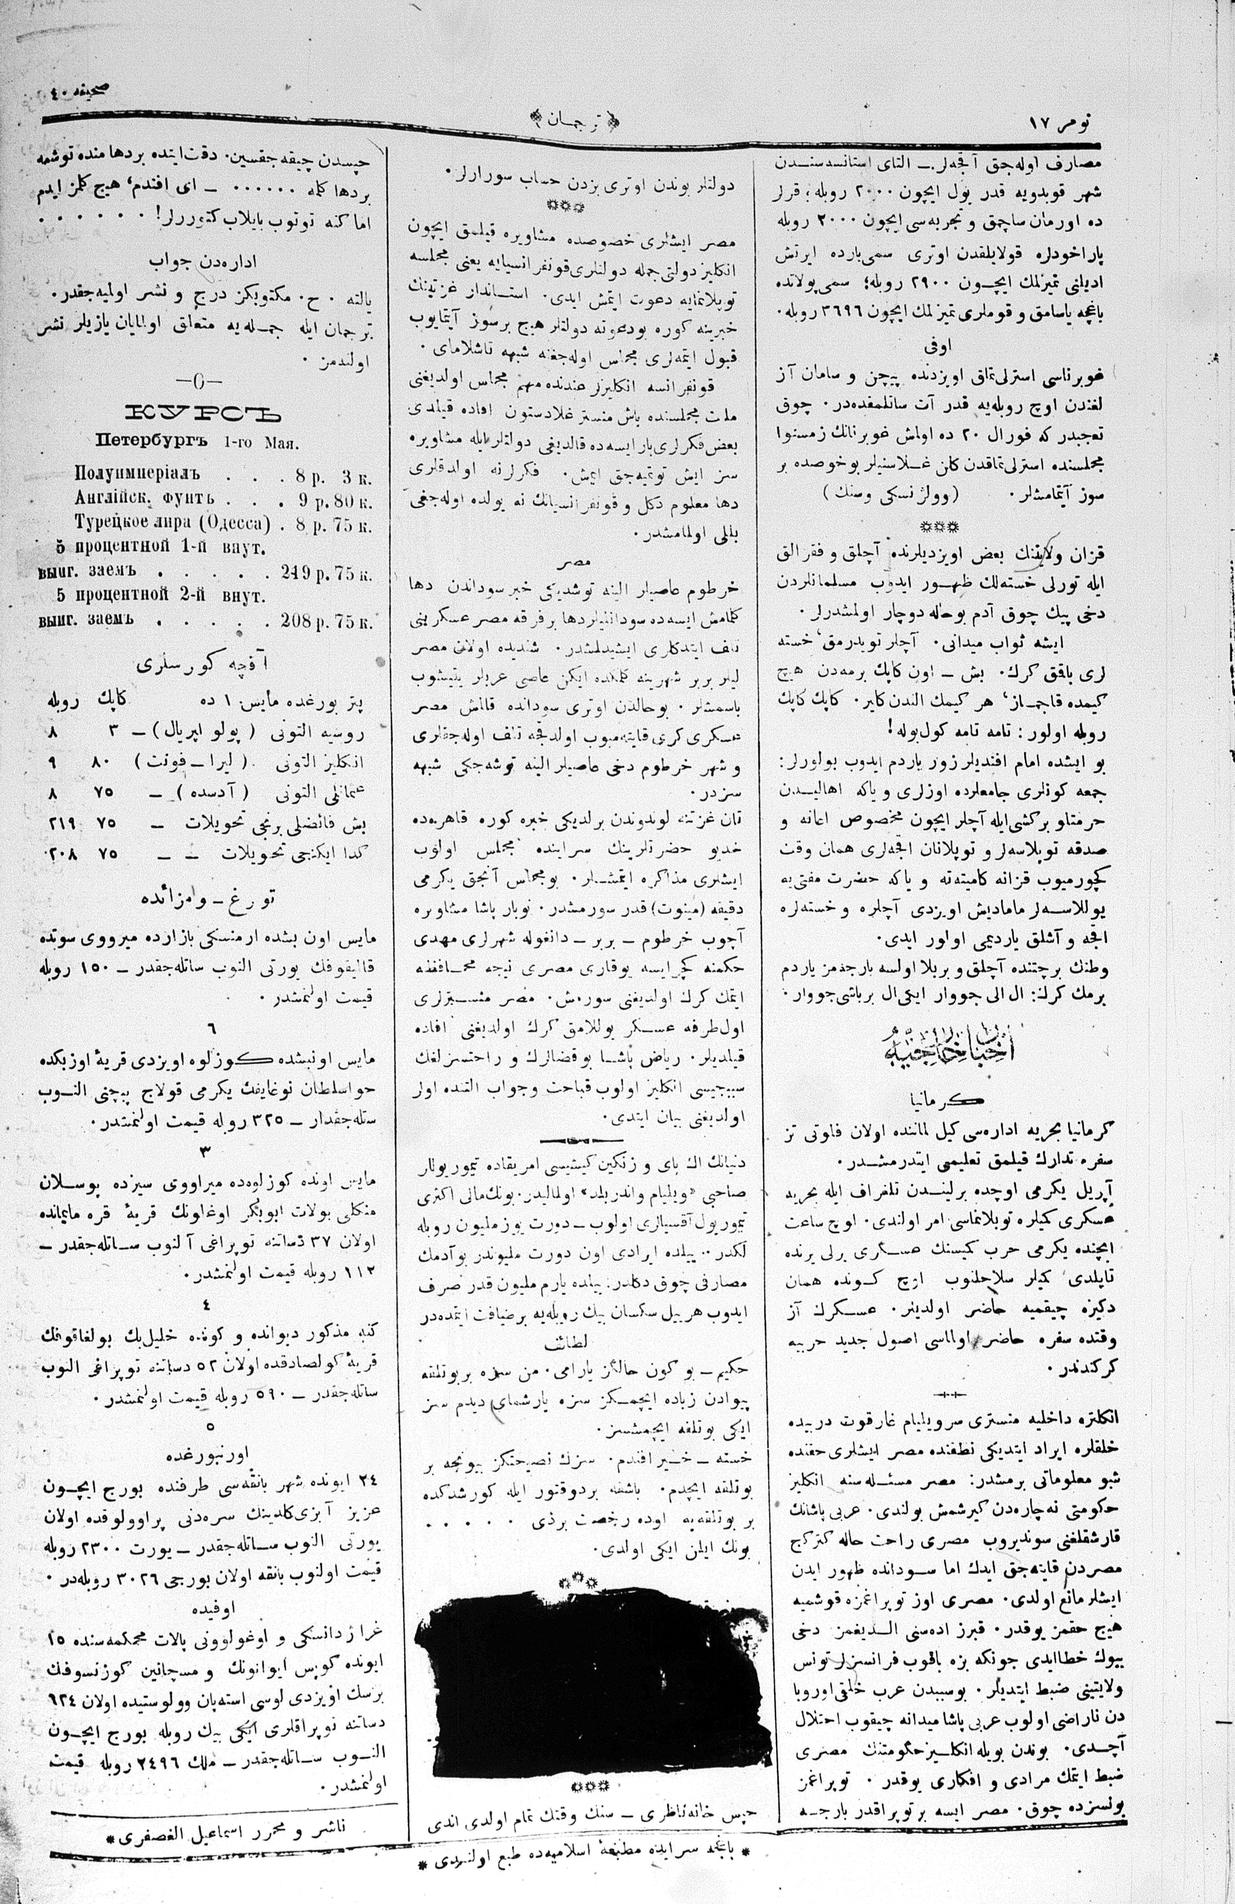 نومر ١٧
﴿ ترجمان ﴾
صحيفه ٤٠
مصارف اوله‌جق آقجه‌لر ــ التاى استانسه‌سندن
شهر قوبدويه قدر يول ايچون ٢٠٠٠ روبله؛ قرلر
ده اورمان ساچمق و تجربه‌سى ايچون ٢٠٠٠ روبله
پاراخودلره قولايلقدن اوترى سمى‌پارده ايرتش
اديلنى تميزلك ايچون ٢٩٠٠ روبله؛ سمى‌پولاتده
باغچه ياسامق و قوملرى تميزلمك ايچون ٣٦٩٦ روبله.
اوفى
غوبرناسى استرلى‌تماق اويزدنده پيچن و سامان آز
لغندن اوچ روبله‌يه قدر آت ساتلمقده‌در. چوق
تعجبدر كه فورال ٢٠ ده اولمش غوبرنانك زمستوا
مجلسنده استرلى‌تماقدن كلن غلاسنيلر بو خوصده بر
سوز آيتمامشلر. (وولژنسكى وستك)
۞۞۞
قزان ولايتنك بعض اويزديلرنده آچلق و فقرالق
ايله تورلى خسته‌لك ظهور ايدوب مسلمانلردن
دخى پك چوق آدم بو حاله دوچار اولمشدرلر.
ايشه ثواب ميدانى. آچلر تويدرمق، خسته
لرى باقق كرك. بش ــ اون كاپك برمه‌دن هيچ
كيمده قاچماز، هر كيمك الندن كلير. كاپك كاپك
روبله اولور: تامه تامه كول بوله!
بو ايشده امام افنديلر زور ياردم ايدوب بولورلر:
جمعه كونلرى جامعلرده اوزلرى و ياكه اهاليدن
حرمتلو بر كشى ايله آچلر ايچون مخصوص اعانه و
صدقه توپلاسه‌لر و توپلانان اقچه‌لرى همان وقت
كچورميوب قزانه كاميته‌ته و ياكه حضرت مفتى‌يه
يوللاسه‌لر ماماديش اويزدى آچلره و خسته‌لره
اقچه و آشلق يارديمى اولور ايدى.
وطنك برجتنده آچلق و بربلا اولسه بارجه‌مز ياردم
برمك كرك: ال الى جووار ايكى ال برباشى جووار.
اخبار خارجيه
كرمانيا
كرمانيا بحريه اداره‌سى كيل لماننده اولان فلوتى تز
سفره تدارك قيلمق تعليمى ايتدرمشدر.
آپريل يكرمى اوچده برليندن تلغراف ايله بحريه
عسكرى كميلره توپلانماسى امر اولندى. اوچ ساعت
ايچنده يكرمى حرب كميسنك عسكرى برلى يرنده
تاپلدى كميلر سلاحلنوب اوچ كونده همان
دكيزه چيقميه حاضر اولديلر. عسكرك آز
وقتده سفره حاضر اولماسى اصول جديد حربيه
كركندندر.
انكلتره داخليه منسترى سر ويليام غارقوت دربيده
خلقلره ايراد ايتديكى نطقنده مصر ايشلرى حقنده
شبو معلوماتى برمشدر: مصر مسئله‌سنه انكليز
حكومتى نه‌چاره‌دن كيرشمش بولندى. عربى پاشانك
قارشقلغنى سونديروب مصرى راحت حاله كتركج
مصردن قايته‌جق ايدك اما سودانده ظهور ايدن
ايشلر مانع اولدى. مصرى اوز توپراغمزه قوشميه
هيچ حقمز يوقدر. قبرز اده‌سنى الديغمز دخى
بيوك خطا ايدى جونكه بزه باقوب فرانسزلر تونس
ولايتينى ضبط ايتديلر. بوسببدن عرب خلقى اوروپا
دن ناراضى اولوب عربى پاشا ميدانه چيقوب احتلال
آچدى. بوندن بويله انكليز حكومتنك مصرى
ضبط ايتمك مرادى و افكارى يوقدر. توپراغمز
بونسزده چوق. مصر ايسه بر توپراقدر بارجه
دولتلر بوندن اوترى بزدن حساب سورارلر.
۞۞۞
مصر ايشلرى خصوصده مشاويره قيلمق ايچون
انكليز دولتى جمله دولتلرى قونفرانسيايه يعنى مجلسه
توپلانمايه دعوت ايتمش ايدى. استاندار غزتينك
خبرينه كوره بودعوته دولتلر هيچ برسوز آيتمايوب
قبول ايتمه‌لرى مجلس اوله‌جغنه شبهه تاشلاماى.
قونفرانسه انكليزلر عندنده مهم مجلس اولديغنى
ملت مجلسنده باش منستر غلادستون افاده قيلدى
بعض فكرلرى بار ايسه‌ده قالديغى دولتلر ايله مشاويره
سز ايش توتميه‌جق ايمش. فكرلرنه اولدقلرى
دها معلوم دكل و قونفرانسيانك نه يولده اوله‌جغى
بللى اولمامشدر.
مصر
خرطوم عاصيلر الينه توشديكى خبر سوداندن دها
كلمامش ايسه‌ده سودانليلر دها بر فرقه مصر عسكرينى
تلف ايتدكلرى ايشيدلمشدر. شنديده اولان مصر
ليلر بربر شهرينه كلمكده ايكن عاصى عربلر يتيشوب
باسمشلر. بو حالدن اوترى سودانده قالمش مصر
عسكرى كرى قايته‌ميوب اولدقجه تلف اوله‌جقلرى
و شهر خرطوم دخى عاصيلر الينه توشه‌جكى شبهه
سزدر.
تان غزتنه لوندوندن برلديكى خبره كوره قاهره‌ده
خديو حضرتلرينك سراينده مجلس اولوب
ايشلرى مذاكره ايتمشلر. بو مجلس آنجق يكرمى
دقيقه (مينوت) قدر سورمشدر. نوبار پاشا مشاويره
آچوب خرطوم ــ بربر ــ دانغوله شهرلرى مهدى
حكمنه كچر ايسه يوقارى مصرى نيچه محافظه
ايتمك كرك اولديغنى سورمش. مصر منسترلرى
اول طرفه عسكر يوللامق كرك اولديغنى افاده
قيلديلر. رياض پاشا بو قضالرك و راحتسزلغك
سببجيسى انكليز اولوب قباحت و جواب الننده اولر
اولديغنى بيان ايتدى.
دنيانك اك باى و زنكين كيشيسى امريقاده تيمور يوللر
صاحبى «ويليام واندربلد» اولمالى‌در. بونك مالى اكثرى
تيمور يول آقسيالرى اولوب ــ دورت يوز مليون روبله
لكدر.. ييلده ايرادى اون دورت مليوندر بو آدمك
مصارفى چوق دكلدر: ييلده يارم مليون قدر صرف
ايدوب هر ييل سكسان بيك روبله‌يه بر ضيافت ايتمه‌ده‌در
لطائف
حكيم ــ بو كون حالكز يارامى. من سزه بر بوتلقه
پيوادن زياده ايچمكز سزه يارشماى ديدم سز
ايكى بوتلقه ايچمشسز.
خسته ــ خير افندم. سزك نصيحتكز بيونچه بر
بوتلقه ايچدم. باشقه بر دوقتور ايله كورشدكده
بر بوتلقه‌يه اوده رخصت بردى . . . . .
بونك ايلن ايكى اولدى.
۞۞۞
۞۞۞
حپس خانه ناظرى ــ سنك وقتك تمام اولدى اندى
حپسدن چيقه جقسين. دقت ايتده بر دها منده توشمه
بر دها كلمه ...... ــ اى افندم، هيچ كلمز ايدم
اما كنه توتوب بايلاب كتوررلر! . . . . . .
اداره‌دن جواب
يالته . ح. مكتوبكز درج و نشر اولميه‌جقدر.
ترجمان ايله جمله‌يه متعلق اولمايان يازيلر نشر
اولندمز.
—0—
КУРСЪ
Петербургъ 1-го Мая.
Полуимперіалъ . . . 8 р. 3 к.
Англійск. фунтъ . . . 9 р. 80 к.
Турецкое лира (Одесса) . 8 р. 75 к.
5 процентной 1-й внут.
выиг. заемъ . . . . . 249 р. 75 к.
5 процентной 2-й внут.
выиг. заемъ . . . . . 208 р. 75 к.
آقچه كورسلرى
پتربورغده مايس ١ ده كاپك روبله
روسيه التونى (پولو اپريال) ــ ٣ ٨
انكليز التونى (ليرا ــ فونت) ٨٠ ٩
عثمانلى التونى (آدسده) ــ ٧٥ ٨
بش فائضلى برنجى تحويلات ــ ٧٥ ٢١٩
كذا ايكنجى تحويلات ــ ــ ٧٥ ٢٠٨
تورغ ــ و امزائده
مايس اون بشده ارمنسكى بازارده ميرووى سوتده
قاليفوفك يورتى النوب ساتله‌جقدر ــ ١٥٠ روبله
قيمت اولنمشدر.
٦
مايس اونبشده كوزلوه اويزدى قريۀ اوزبكده
حواسلطان نوغايفك يكرمى قولاچ پيچنى النوب
ستله‌جقدار ــ ٣٢٥ روبله قيمت اولنمشدر.
٣
مايس اونده كوزلوه‌ده ميراووى سيزده بوسلان
منكلى بولات ابوبكر اوغلونك قريۀ قره مايمانده
اولان ٣٧ دساتنه توپراغى آلنوب ساتله‌جقدر ــ
١١٢ روبله قيمت اولنمشدر.
٤
كنه مذكور ديوانده و كونده خليل بك بولغاقوفك
قريۀ كولصادقده اولان ٥٢ دساتنه توپراغى النوب
ساتله‌جقدر ــ ٥٩٠ روبله قيمت اولنمشدر.
٥
اورنبورغده
٢٤ ايونده شهر بانقه‌سى طرفنده بورج ايچون
عزيز آبزى‌كلدينك سره‌دنى پراوولوقده اولان
يورتى النوب ساتله‌جقدر ــ يورت ٢٣٠٠ روبله
قيمت اولنوب بانقه اولان بورجى ٣٠٢٦ روبله‌در.
اوفيده
غراژدانسكى و اوغولوونى پالات محكمه‌سنده ١٥
ايونده كوپس ايوانونك و مسچانين كوزنسوفك
برسك اويزدى لوسى استه‌پان وولوستيده اولان ٦٢٤
دساتنه توپراقلرى ايكى بيك روبله بورج ايچون
النوب ساتله‌جقدر ــ ملك ٢٤٩٦ روبله قيمت
اولنمشدر.
ناشر و محرر اسماعيل الغصفرى*
* باغچه سرايده مطبعۀ اسلاميه‌ده طبع اولندى *